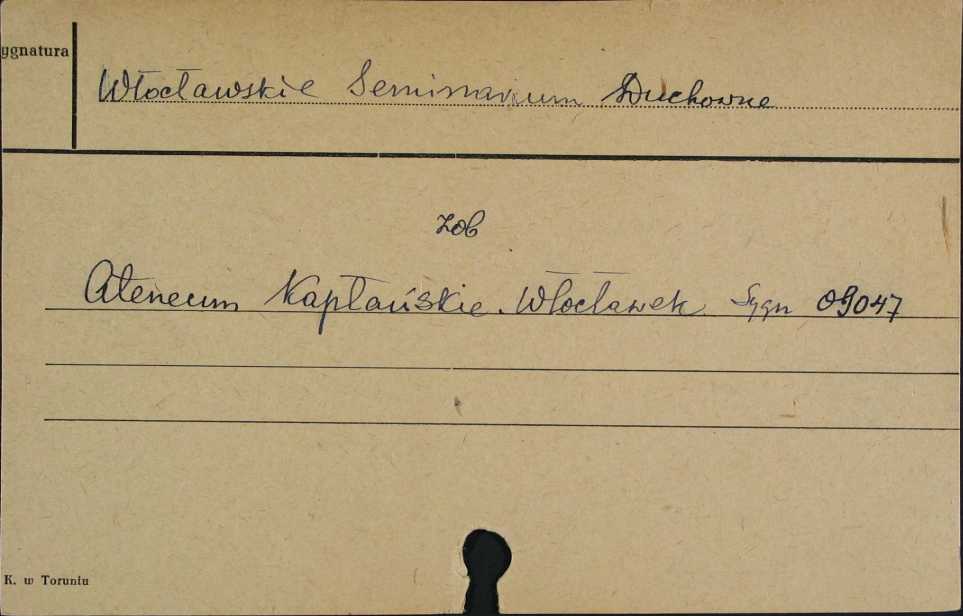 ygnatura
Włocławskie Seminarium Duchowne
zob
Ateneum Kapłańskie. Włocławek Sygn 09047
K. w Toruniu